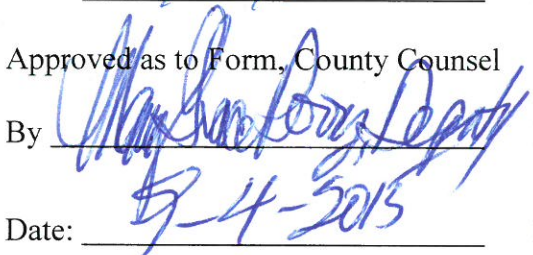 Approved as to Form, County Counsel
By Deputy
Date: -4-2015